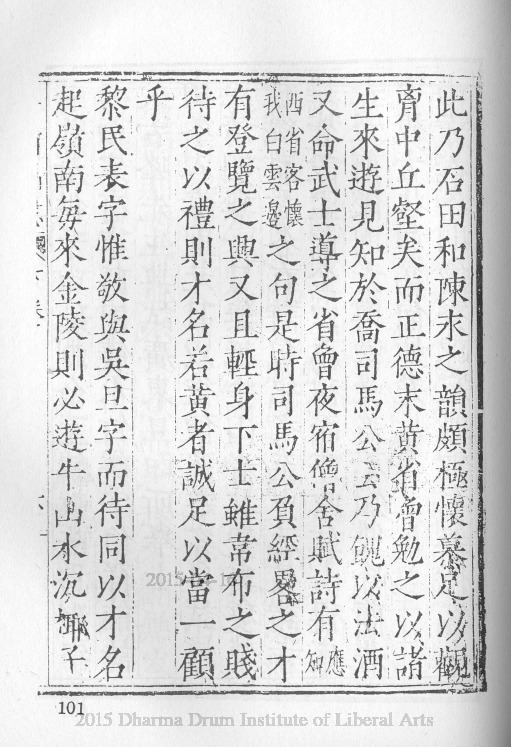 此乃石田和陳永之韻頗極懷慕足以觀
胷中丘壑矣而正德末黃省曾勉之以諸
生來遊見知於喬司馬公公乃餽以法酒
又命武士導之省曾夜宿僧舍賦詩有應知
西省客懷我白雲邊之句是時司馬公負經畧之才
有登覽之興又且輕身下士雖韋布之賤
待之以禮則才名若黃者誠足以當一顧
乎
黎民表字惟敬與吳旦字而待同以才名
起嶺南每來金陵則必遊牛山水沉椰子
101
2015 Dharma Drum Institute of Liberal Arts